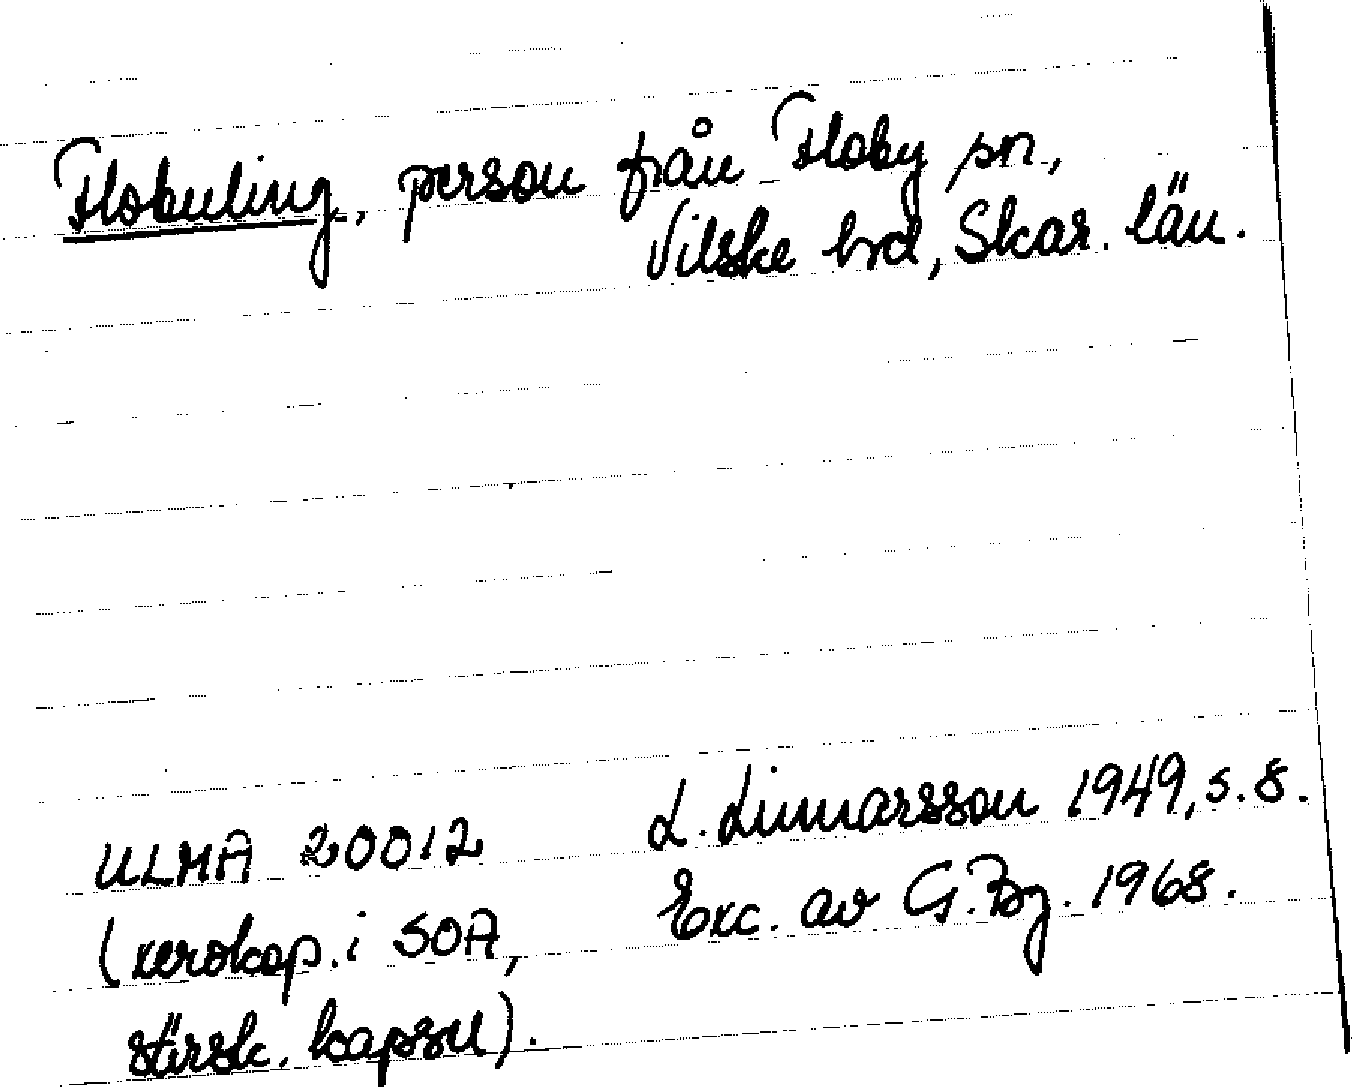 Flobuling, person från Floby sn,
Vilske hrd, Skar. län.
ULMA 20012
(xerokop. i SOA,
särsk. kapsel).
L. Linnarsson 1949, s. 8.
Exc. av G. Bg. 1968.